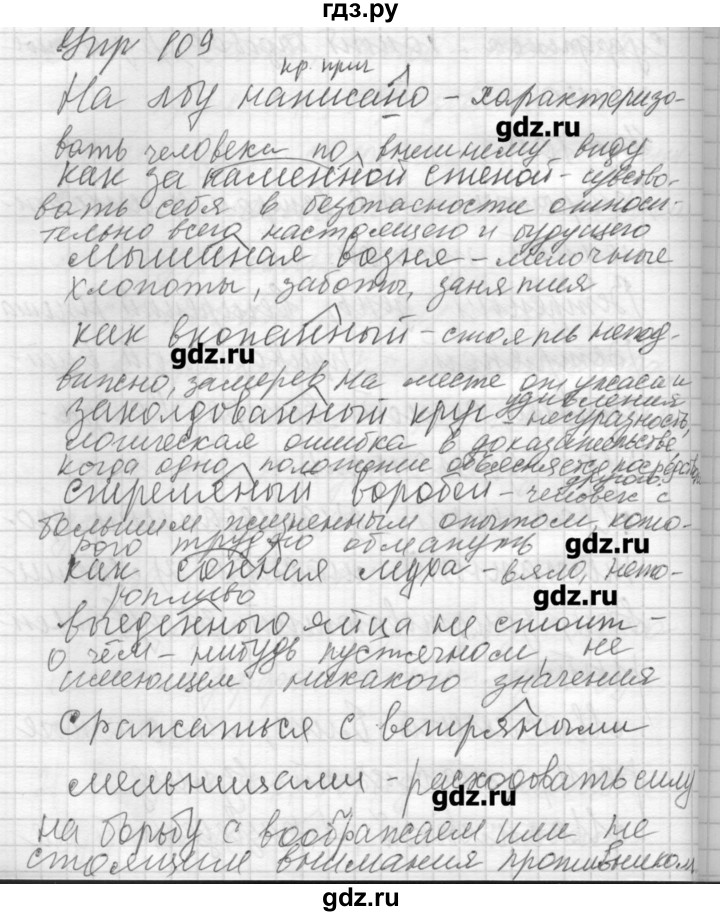 гдз.ру
Упр 109
кр. прич
На лбу написано - характеризо-
gdz.ru
вать человека по внешнему виду
как за каменной стеной - чувство-
вать себя в безопасности относи-
тельно всего настоящего и будущего
мышиная возня - мелочные
хлопоты, заботы, занятия
как вкопанный - стоять непод-
gdz.ru
вижно, замерев на месте от ужаса и
удивления
заколдованный круг - несуразность,
логическая ошибка в доказательстве,
когда одно положение объясняется посредством
другого
стреляный воробей - человек с
большим жизненным опытом, кото-
рого трудно обмануть
gdz.ru
как сонная муха - вяло, нето-
ропливо
gdz.ru
выеденного яйца не стоит -
о чём-нибудь пустячном, не
имеющем никакого значения
Сражаться с ветряными
мельницами - расходовать силу
gdz.ru
на борьбу с воображаем или не
стоящим внимания противником
gdz.ru